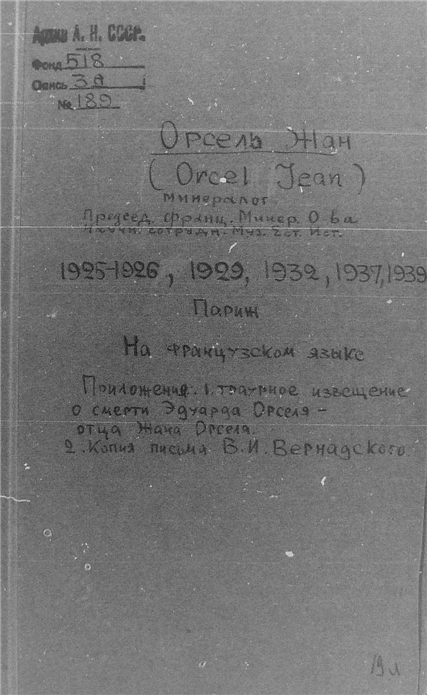 Архив А. Н. СССР.
Фонд 518
Опись 3а
№ 189
Орсель Жан
(Orcel Jean)
минералог
Председ. франц. Минер. О-ва
Научн. сотрудн. Муз. Ест. Ист.
1925-1926, 1929, 1932, 1937, 1939
Париж
На французском языке
Приложения: 1. траурное извещение
о смерти Эдуарда Орселя –
отца Жана Орселя.
2. Копия письма В. И. Вернадского
19 л